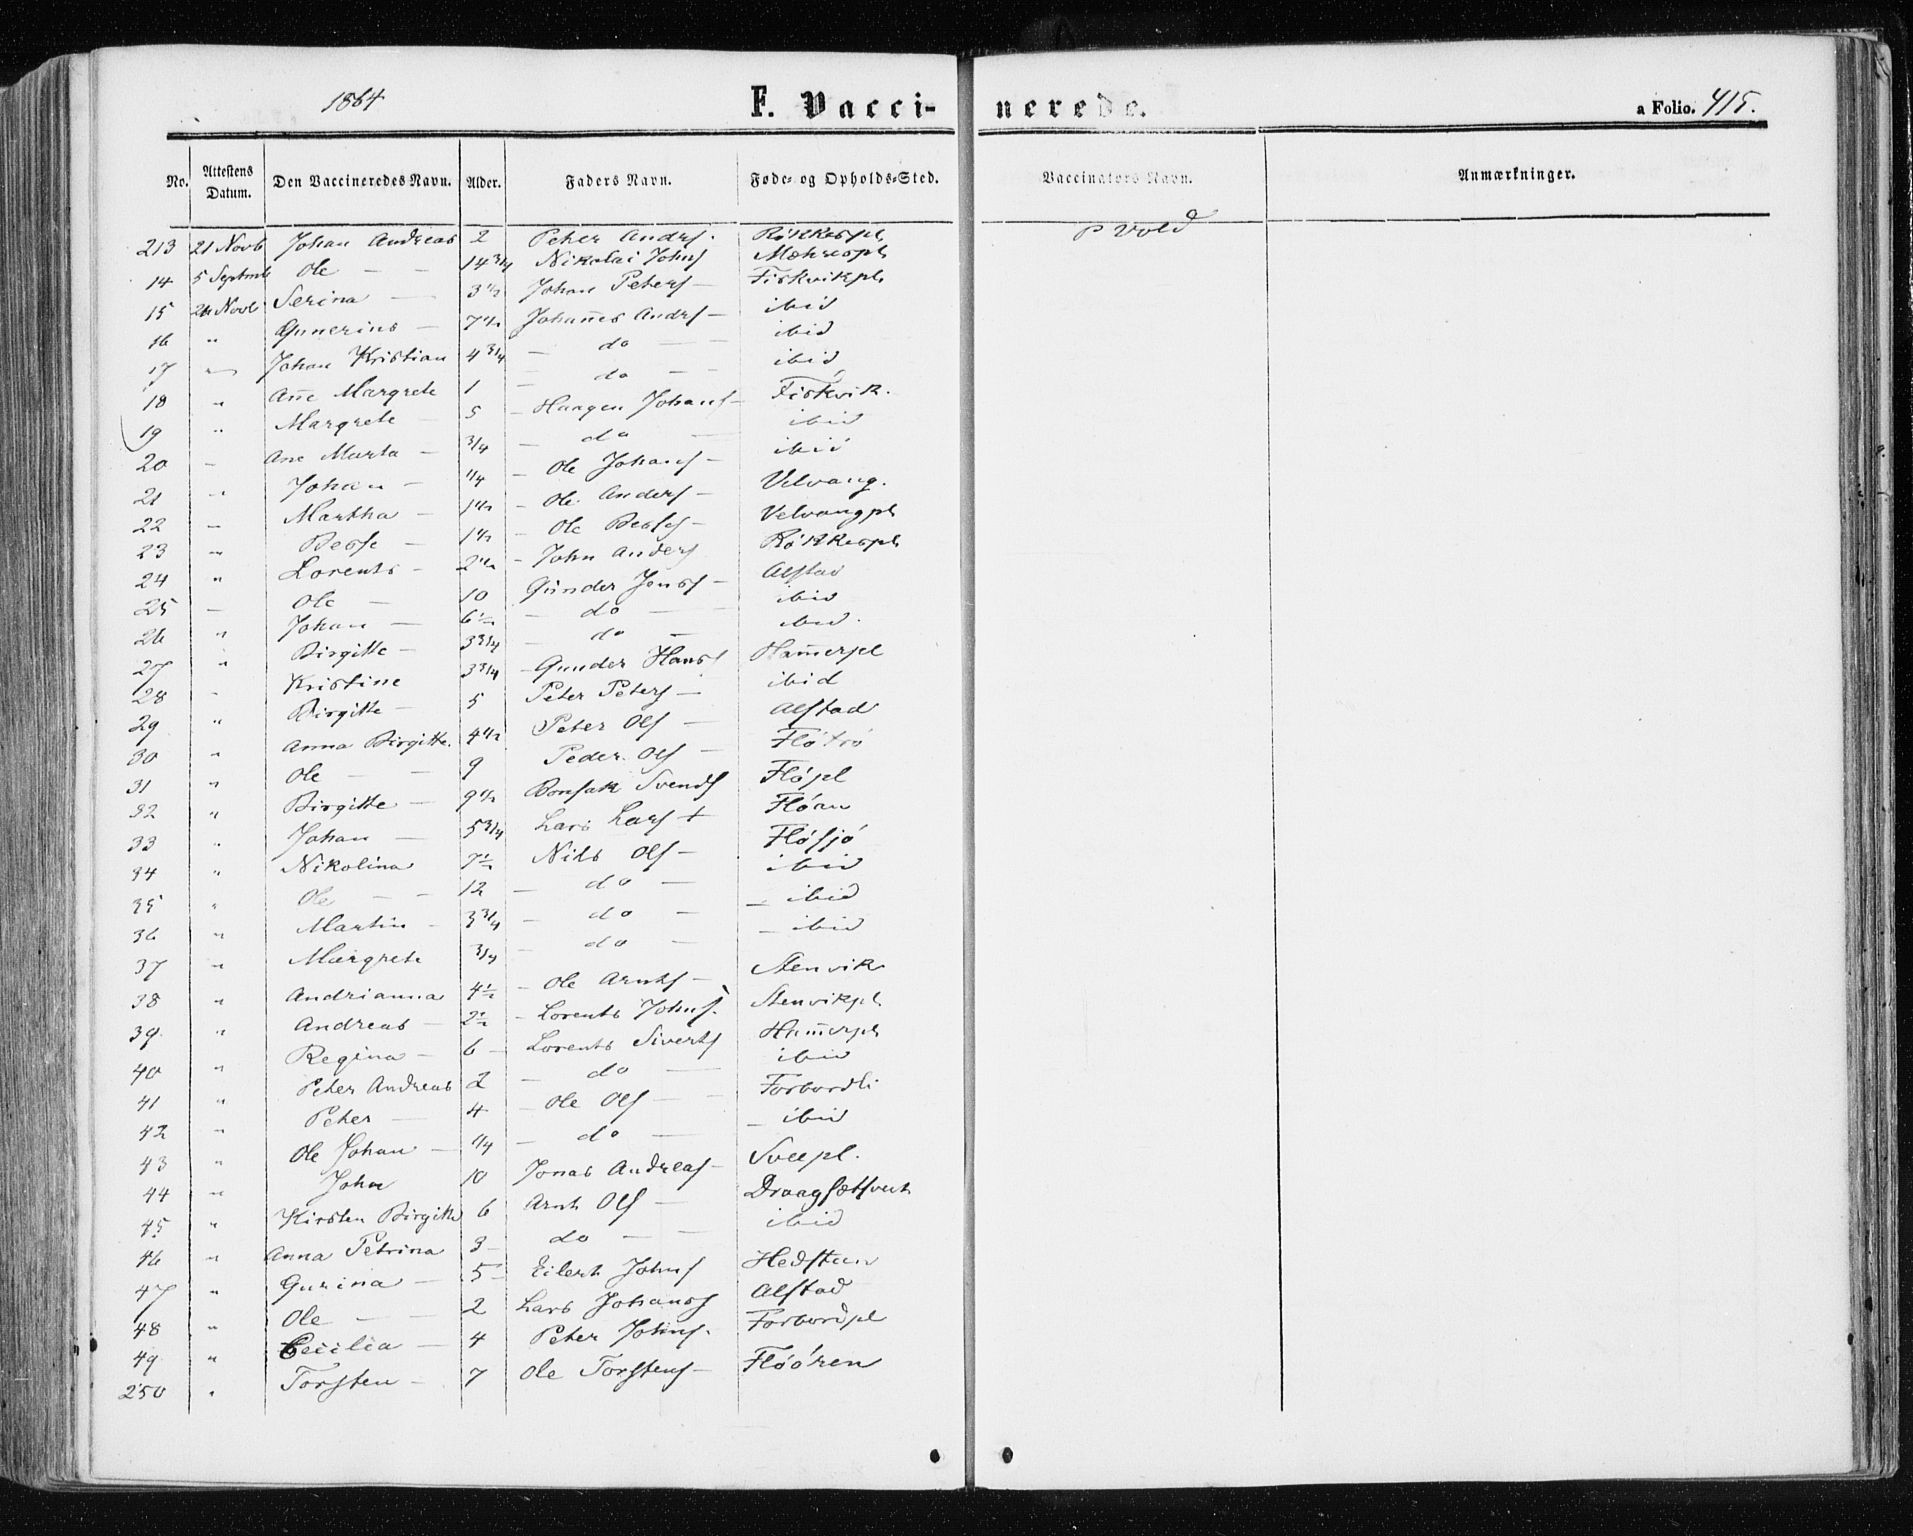 1864 F. Vacci- nerede. a Folio. 415.
No. Attestens Datum. Den Vaccineredes Navn. Alder. Faders Navn. Føde- og Opholds-Sted. Vaccinators Navn. Anmærkninger.
213 21 Novb Johan Andreas 2 Peter Andrs. Røkkespl P Vold
14 5 Septmb Ole — — 14 3/4 Nikolai Johns Mæhrespl
15 21 Novb Serina — 3 1/2 Johan Peters — Fiskvikpl
16 " Gunerius — 7 1/2 Johañes Andrs — ibid
17 — Johan Kristian 4 3/4 — do — — ibid
18 " Añe Margrete 1 — do — — ibid
19 " Margrete — 5 — Haagen Johans — Fiskvik.
20 — Ane Marta — 3/4 — do — ibid
21 " Johan — 1/4 — Ole Johans — ibid
22 — Martha — 1 1/2 — Ole Anders — Velvang.
23 " Berse — 1 1/2 — Ole Berses — Velvangpl
24 " Lorents — 2 1/2 — John Anders Røkkespl
25 — Ole — 10 Gunder Jonss — Alstad
26 " Johan — 6 1/2 — do — ibid
27 " Birgitte — 3 3/4 — do — ibid.
28 " Kristine 3 3/4 — Gunder Hanss Ham̃erpl
29 " Birgitte — 5 Peter Peters — ibid
30 " Anna Birgitte. 4 1/2 Peter Ols — Alstad
31 " Ole — — 9 Peder Ols — Fløtrø
32 " Birgitte — 9 1/2 Bonsak Svends Fløpl
33 " Johan — 5 3/4 Lars Lars + Fløan
34 " Nikolina 7 1/2 Nils Ols — Fløsjø
35 " Ole — — 12 — do — ibid
36 " Martin — 3 3/4 — do — — ibid
37 " Margrete 3/4 — do — — ibid
38 " Andrianna 4 1/2 — Ole Arnts — Stenvik
39. " Andreas — 2 1/2 — Lorents Johns. Stenvikpl
40 " Regina — 6 — Lorents Siverts Ham̃erpl
41 " Peter Andreas 2 — do — ibid
42 " Peter — 4 — Ole Ols — Forbordli
43 " Ole Johan — 1/4 — do — — ibid
44 " John 10 Jonas Andreas — Sveepl.
45 " Kirsten Birgitte 6 Arnt Ols — Draagsætsvect
46 " Anna Petrina 3 — do — — ibid
47 " Gurina — 5 — Eilert Johns Hedsteen
48 " Ole — — 2 Lars Johanss Alstad
49 " Cecilia — 4 Peter Johns. Forbordpl
250 " Torsten — 7 Ole Torstens — Fløóren